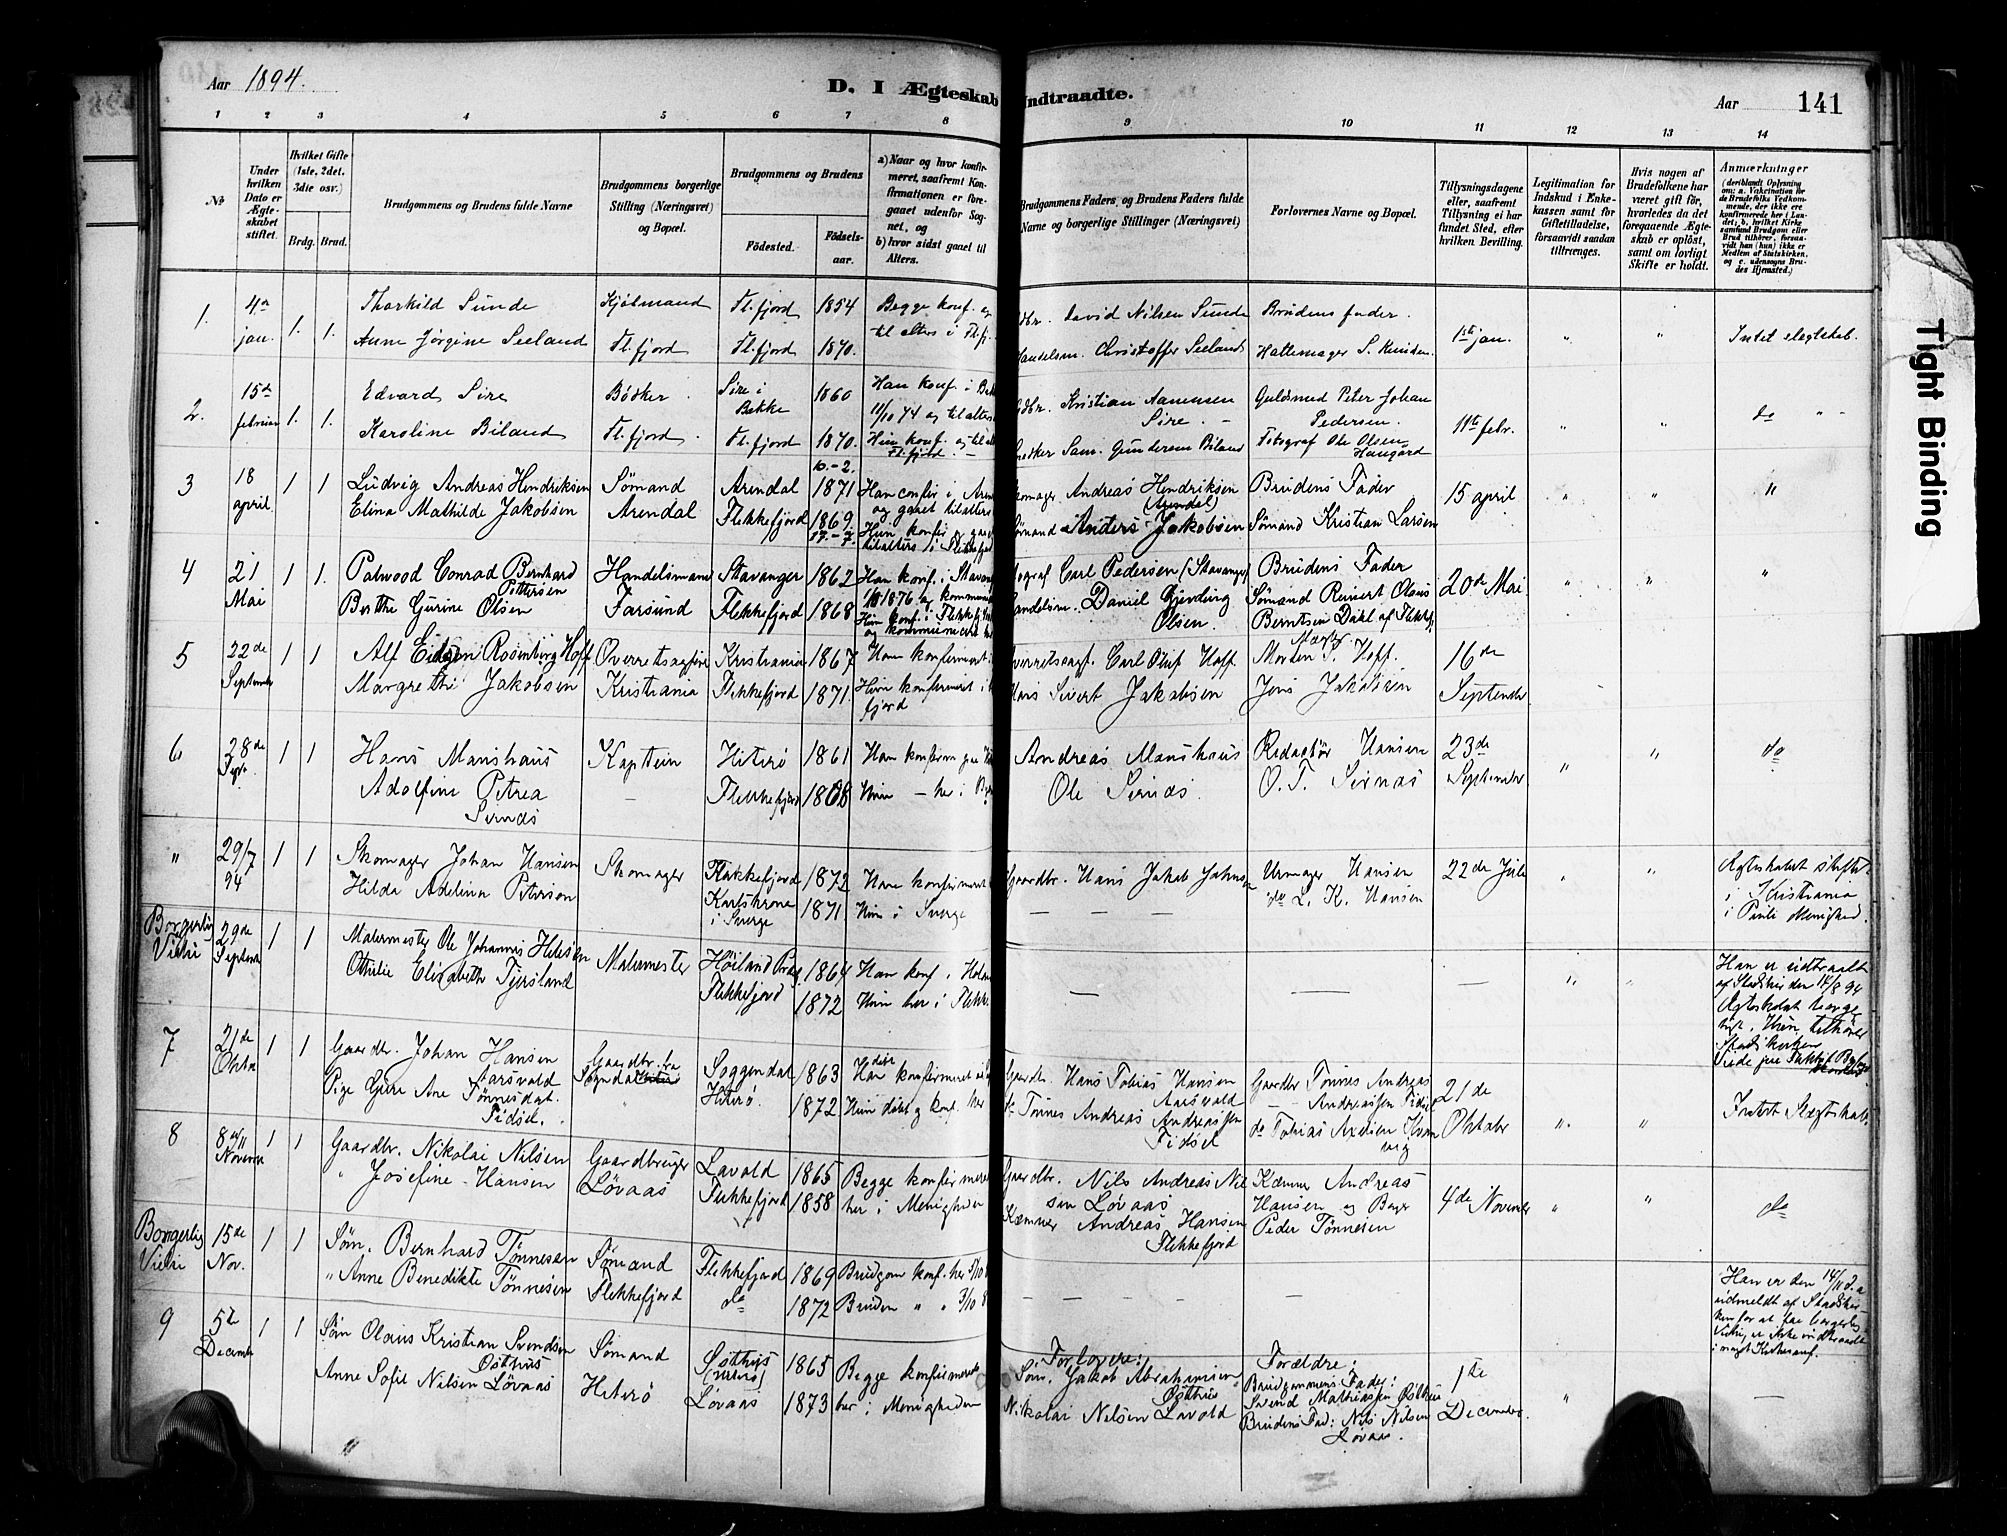 Aar 1894.
D. I Ægteskab Indtraadte.
Aar
141
1 2 3 4 5 6 7 8 9 10 11 12 13 14
No
Under hvilken Dato er Ægteskabet stiftet.
Hvilket Gifte (1ste, 2det, 3die osv.)
Brdg. Brud.
Brudgommens og Brudens fulde Navne
Brudgommens borgerlige Stilling (Næringsvei) og Bopæl.
Brudgommens og Brudens
Födested. Födsels-aar.
a) Naar og hvor konfirmeret, saafremt Konfirmationen er foregaaet udenfor Sognet, og
b) hvor sidst gaaet til Alters.
Brudgommens Faders, og Brudens Faders fulde Navne og borgerlige Stillinger (Næringsvei)
Forlovernes Navne og Bopæl.
Tillysningsdagene eller, saafremt Tillysning ei har fundet Sted, efter hvilken Bevilling.
Legitimation for Indskud i Enkekassen samt for Giftetilladelse, forsaavidt saadan tiltrænges.
Hvis nogen af Brudefolkene har været gift før, hvorledes da det foregaaende Ægteskab er oplöst, samt om lovligt Skifte er holdt.
Anmærkninger
(deriblandt Oplysning om: a. Vakcination for de Brudefolks Vedkommende, der ikke ere konfirmerede her i Landet; b. hvilket Kirkesamfund Brudgom eller Brud tilhörer, forsaavidt han (hun) ikke er Medlem af Statskirken, og c. udensogns Brudes Hjemsted.)
1. 4de jan. 1. 1.
Thorkild Sunde
Anne Jörgine Seeland
Kjöbmand
Fl.fjord
Fl.fjord 1854
Fl.fjord 1870.
Begge konf. og til alters i Fl.fj.
David Nilsen Sunde
Handelsm. Christoffer Seeland
Brudens fader.
Hattemager S. Knudsen.
1ste jan. " "
Intet slegtskab.
2. 15de februar 1. 1.
Edvard Sire
Karoline Biland
Bödker
Fl.fjord.
Sire i Bakke 1860
Fl.fjord 1870.
Han konf. i Bak
11/10 74 og til alters
Hun konf. og til al
Fl.fjord
Kristian Aanensen Sire.
Snedker Sam. Gundersen Biland
Guldsmed Peter Johan Pedersen.
Fotograf Ole Olsen Haugård
11te febr. " " do
3 18 april 1 1
Ludvig Andreas Hendriksen
Elina Mathilde Jakobsen
Sømand
Arendal
Arendal 10.-2. 1871
Flekkefjord 1869. 17.-7.
Han confir. i Aren
og gaaet til alters
Hun konfir og gaae
til alters i Flekkefjord
Skomager Andreas Hendriksen (Arendal)
Sømand Anders Jakobsen
Brudens Fader
Sømand Kristian Larsen
15 april " " "
4 21 Mai 1 1.
Palwood Conrad Bernhard Pettersen
Berthe Gurine Olsen
Handelsmand
Farsund
Stavanger 1862
Flekkefjord 1868
Han konf. i Stavan
1876 og kommun
Hun konf. i Flekkefj
og kommuniceret her
Carl Pedersen (Stavanger)
Handelsm. Daniel Gjerding Olsen.
Brudens Fader
Sømand Reinert Olaus Berntsen Dahl af Flekkfj.
20de Mai " " "
5 22de September 1 1
Alf Rosenberg Hoff
Margrethe Jakobsen
Overretssagfører
Kristiania
Kristiania 1867
Flekkefjord 1871.
Han konfirmeret i
Hun konfirmeret i
fjord
Overretssagf. Carl Oluf Hoff.
Hans Sivert Jakobsen
Morten T. Hoff.
Jens Jakobsen
16de September
6 28de Sept. 1 1
Hans Manshaus
Adolfine Petrea Sirnæs
Kaptein
—
Hiterø 1861
Flekkefjord 1868
Han konfirm
Hun — her i By
Andreas Manshaus
Ole Sirnæs.
Redaktør Hansen
O. T. Sirnæs
23de September " " do
" 29/7 94 1 1
Skomager Johan Hansen
Hilda Adelina Peterson
Skomager
Flekkefjord 1872
Karlskrona i Sverge 1871
Han konfirmeret
Hun i Sverge
Gaardbr. Hans Jakob Jahnsen
— — —
Urmager Hansen
do L. K. Hansen
22de Juli " "
Ægteskabet stiftet i Kristiania i Pauli Menighed.
Borgerlig Vielse 29de September 1 1
Malermester Ole Johannes Hilesen
Othilie Elisabeth Tjørsland
Malermester
Höiland Præg. 1864
Flekkefjord 1872
Han konf. i Holm
Hun her i Flekk.
— — —
Han er udtraadt
af Statskir den 14/8 94
Ægteskabet borger
ligt. Hun tilhører
Statskirken
7 21de Oktbr 1 1
Gaardbr. Johan Hansen Aarsvald
Pige Guri Ane Tønnesdat. Fidsel.
Gaardbr. fra Sogndal
Soggendal 1863
Hiterø. 1872
Han konfirmeret
Hun døbt og konf. her
Gaardbr. Hans Tobias Hansen Aarsvald
do Tønnes Andreas Andreassen Fidsel
Gaardbr Tønnes Andreas Andreassen Fidsel
do Tobias Axelsen Kvanvig
21de Oktober " "
Intet Slegtskab.
8 8de/11 November 1 1
Gaardbr. Nikolai Nilsen
" Josefine Hansen
Gaardbruger
Løvaas
Lavold 1865
Flekkefjord 1858
Begge konfirmeret
her i Menigheden
Gaardbr. Nils Andreas Nilsen Løvaas
Kæmner Andreas Hansen Flekkefjord
Kæmner Andreas Hansen og Bager Peder Tønnesen
4de November " " do
Borgerlig Vielse 15de Nov. 1 1
Søm. Bernhard Tønnesen
" Anne Benedikte Tønnesen
Sømand
Flekkefjord
Flekkefjord 1869
do 1872
Brudgom konf. her 5/10 8
Bruden " " 3/10 8
— — —
Han er den 14/11 d.a.
udmeldt af Statskirken for at faa borgerlig
Vielse, er ikke indtraadt
i noget Kirkesamf.
9 5te December 1 1
Søm Olaus Kristian Svendsen Østhus
Anne Sofie Nilsen Løvaas
Sømand
Hiterø
Østhus (Hiterø) 1865
Løvaas 1873
Begge konfirmeret
her i Menigheden
Forlovere:
Søm. Jakob Abrahamsen Østhus
Nikolai Nilsen Lavold
Forældre:
Brudgommens Fader:
Svend Mathiassen Østhus
Brudens Fad: Nils Nilsen Løvaas.
1ste December. " —
Tight Binding